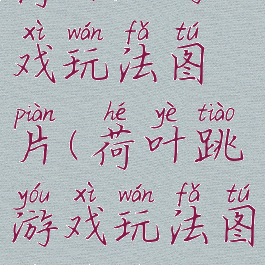 xì wán fǎ tú
戏玩法图
piàn hé yè tiào
片(荷叶跳
yóu xì wán fǎ tú
游戏玩法图